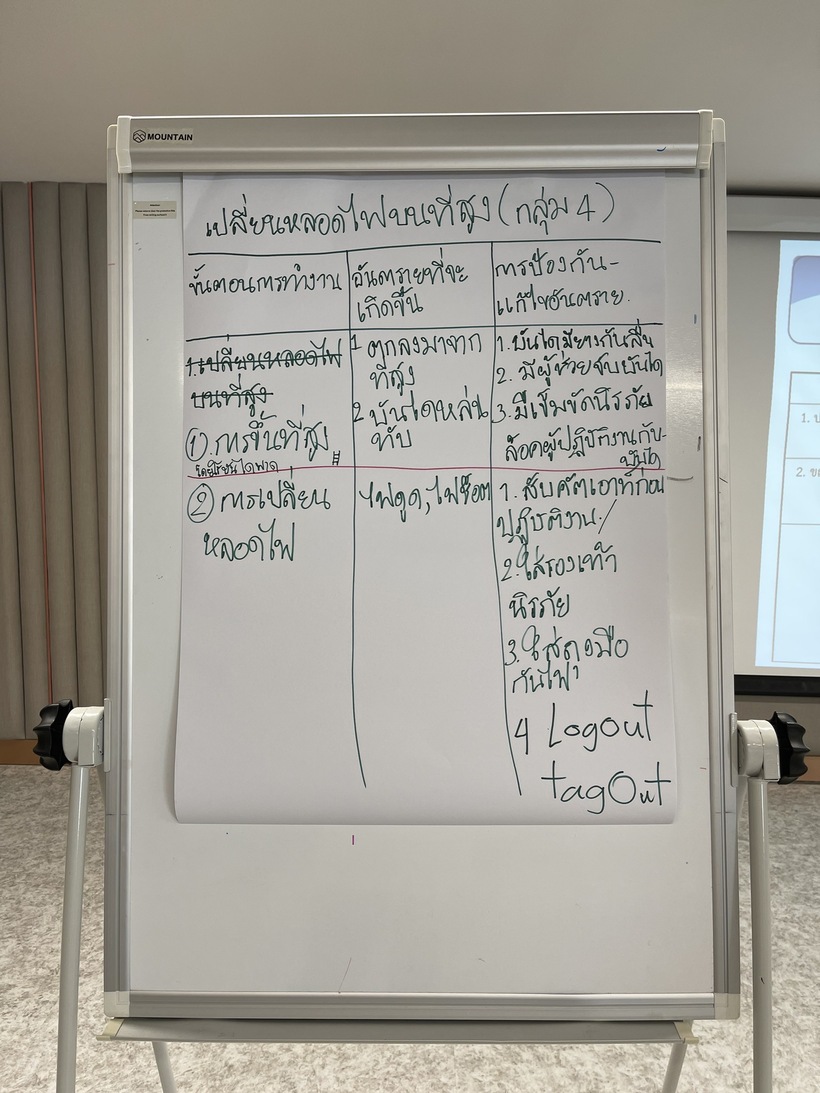 MOUNTAIN
เปลี่ยนหลอดไฟบนที่สูง (กลุ่ม 4)
ขั้นตอนการทำงาน
อันตรายที่จะ
เกิดขึ้น
การป้องกัน-
แก้ไขอันตราย.
1. เปลี่ยนหลอดไฟ
บนที่สูง
① การขึ้นที่สูง
โดยใช้บันไดพาด
1 ตกลงมาจาก
ที่สูง
2 บันไดหล่น
ทับ
1. บันไดมียางกันลื่น
2. มีผู้ช่วยจับบันได
3. มีเข็มขัดนิรภัย
ล็อคผู้ปฏิบัติงานกับ-
บันได
② การเปลี่ยน
หลอดไฟ
ไฟดูด, ไฟช็อต
1. สับคัตเอาท์ก่อน
ปฏิบัติงาน/
2. ใส่รองเท้า
นิรภัย
3. ใส่ถุงมือ
กันไฟ
4 Logout
tagOut
1.
2.